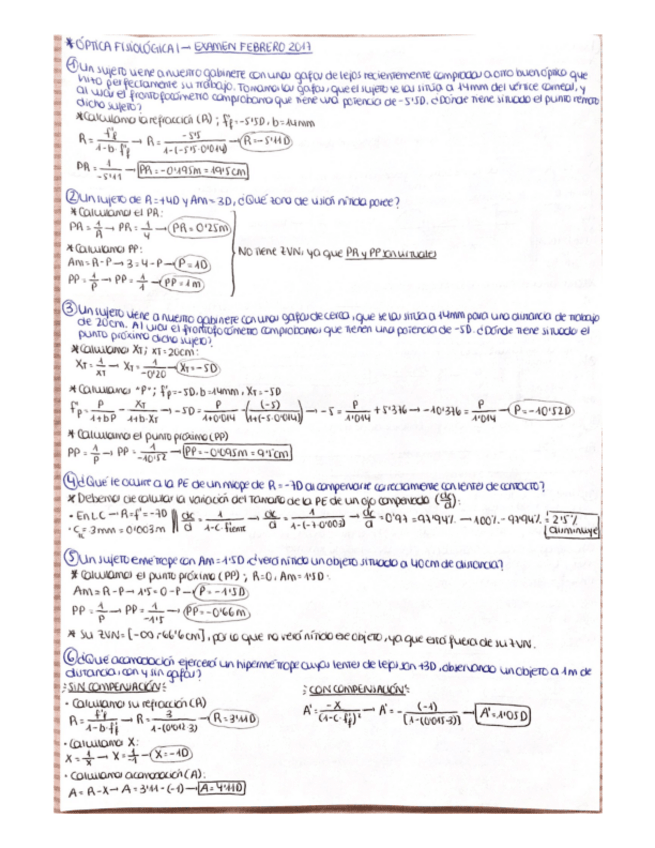 * ÓPTICA FISIOLÓGICA I — EXAMEN FEBRERO 2017
① Un sujeto viene a nuestro gabinete con unas gafas de lejos recientemente compradas a otro buen óptico que
hizo perfectamente su trabajo. Tomamos las gafas, que el sujeto se las sitúa a 14mm del vértice corneal, y
al usar el frontofocómetro comprobamos que tiene una potencia de -5'5D. ¿Dónde tiene situado el punto remoto
dicho sujeto?
* Calculamos la refracción (R) ; f'f = -5'5D, b = 14mm
R = f'f / 1-b·f'f → R = -5'5 / 1-(-5'5·0'014) → R = -5'11D
PR = 1 / -5'11 → PR = -0'195m = 19'5cm
② Un sujeto de R = +4D y Am = 3D, ¿Qué zona de visión nítida posee?
* Calculamos el PR:
PR = 1/R → PR = 1/4 → PR = 0'25m
* Calculamos PP:
Am = R-P → 3 = 4-P → P = 1D
PP = 1/P → PP = 1/1 → PP = 1m
No tiene ZVN; ya que PR y PP son virtuales
③ Un sujeto viene a nuestro gabinete con unas gafas de cerca, que se las sitúa a 14mm para una distancia de trabajo
de 20cm. Al usar el frontofocómetro comprobamos que tienen una potencia de -5D. ¿Dónde tiene situado el
punto próximo dicho sujeto?
* Calculamos XT ; xT = 20cm:
XT = 1/xT → XT = 1/-0'20 → XT = -5D
* Calculamos "P" ; f'p = -5D, b = 14mm, XT = -5D
f'p = P / 1+bP - XT / 1+b·XT → -5D = P / 1+0'014 - (-5) / (1+(-5·0'014)) → -5 = P / 1'014 + 5'376 → -10'376 = P / 1'014 → P = -10'52D
* Calculamos el punto próximo (PP)
PP = 1/P → PP = 1 / -10'52 → PP = -0'095m = 9'5cm
④ ¿Qué le ocurre a la PE de un miope de R = -7D al compensarle correctamente con lentes de contacto?
* Debemos de calcular la variación del tamaño de la PE de un ojo compensado (dc/d):
• En LC → R = f' = -7D
• C = 3mm = 0'003m
dc/d = 1 / 1-c·f'lente → dc/d = 1 / 1-(-7·0'003) → dc/d = 0'97 = 97'94% → 100% - 97'94% = 2'5% disminuye
⑤ Un sujeto emétrope con Am = 1'5D, ¿verá nítido un objeto situado a 40cm de distancia?
* Calculamos el punto próximo (PP) ; R = 0, Am = 1'5D:
Am = R-P → 1'5 = 0-P → P = -1'5D
PP = 1/P → PP = 1 / -1'5 → PP = -0'66m
* Su ZVN = [-∞, -66'6cm], por lo que no verá nítido ese objeto, ya que está fuera de su ZVN.
⑥ ¿Qué acomodación ejercerá un hipermétrope cuyas lentes de lejos son +3D, observando un objeto a 1m de
distancia, con y sin gafas?
SIN COMPENSACIÓN:
• Calculamos su refracción (R)
R = f'f / 1-b·f'f → R = 3 / 1-(0'012·3) → R = 3'11D
• Calculamos X:
X = 1/x → X = 1/-1 → X = -1D
• Calculamos acomodación (A):
A = R-X → A = 3'11-(-1) → A = 4'11D
CON COMPENSACIÓN:
A' = -X / (1-c·f'f)² → A' = -(-1) / (1-(0'015·3)) → A' = 1'05D